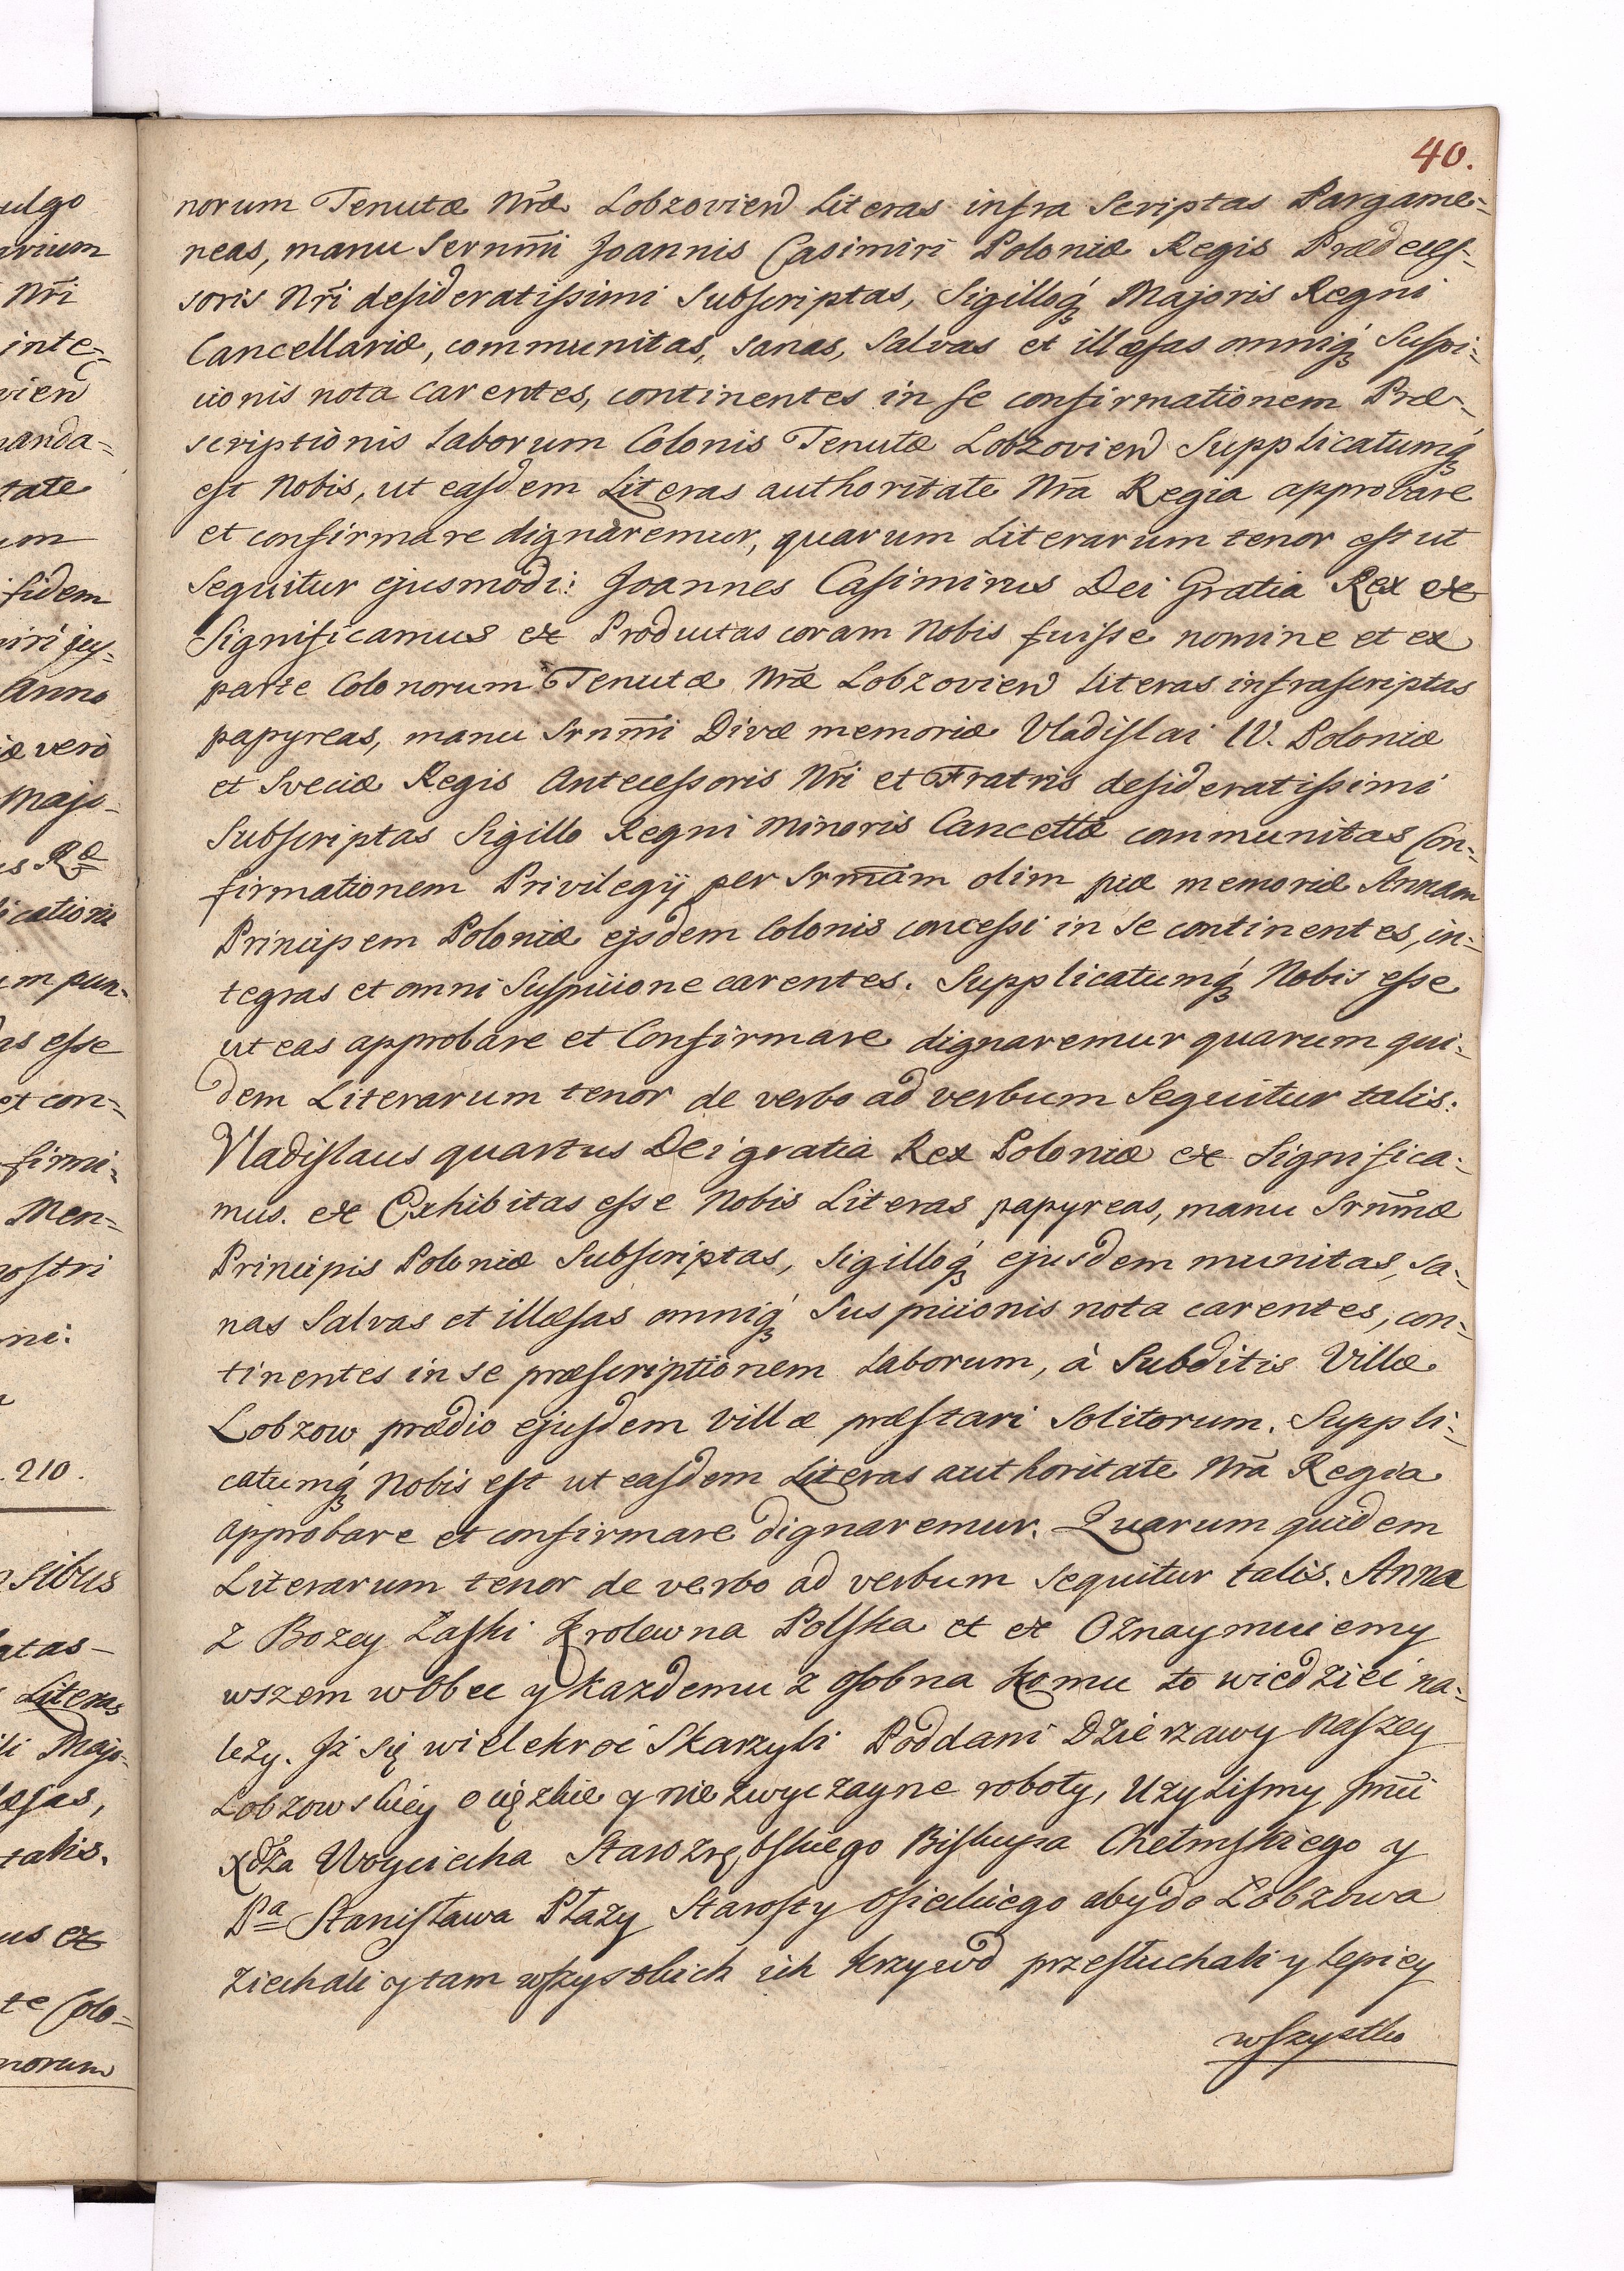 40.
norum Tenutæ Nr̃æ Lobzovien̄ Literas infra Scriptas Pargame-
neas, manu Sernm̃i Joannis Casimiri Poloniæ Regis Prædeces-
soris Nr̃i desideratissimi Subscriptas, Sigilloq́ Majoris Regni
Cancellariæ, communitas, sanas, Salvas et illæsas omniq́ Suspi-
cionis nota carentes, continentes in se confirmationem Præ-
scriptionis laborum Colonis Tenutæ Lobzovien̄ Supplicatumq́
est Nobis, ut easdem Literas authoritate Nr̃a Regia approbare
et confirmare dignaremur, quarum Literarum tenor est ut
Sequitur ejusmodi: Joannes Casimirus Dei Gratia Rex &c
Significamus &c Productas coram Nobis fuisse nomine et ex
parte Colonorum Tenutæ Nr̃æ Lobzovien̄ Literas infrascriptas
papyreas, manu Srnm̃i Divæ memoriæ Vladislai IV. Poloniæ
et Sveciæ Regis Antecessoris Nr̃i et Fratris desideratissimi
Subscriptas Sigillo Regni Minoris Cancellæ communitas Con-
firmationem Privilegij per Srm̃am olim piæ memoriæ Annam
Principem Poloniæ ejsdem Colonis concessi in se continentes, in-
tegras et omni Suspicione carentes. Supplicatumq́ Nobis esse
ut eas approbare et Confirmare dignaremur quarum qui-
dem Literarum tenor de verbo ad verbum Sequitur talis:
Vladislaus quartus Dei gratia Rex Poloniæ &c Significa-
mus. &c Exhibitas esse Nobis Literas papyreas, manu Srnm̃æ
Principis Poloniæ Subscriptas, Sigilloq́ ejusdem munitas, sa-
nas Salvas et illæsas omniq́ Suspicionis nota carentes, con-
tinentes in se præscriptionem laborum, à Subditis Villæ
Lobzow prædio ejusdem villæ præstari Solitorum. Suppli-
catumq́ Nobis est ut easdem Literas authoritate Nr̃a Regia
approbare et confirmare dignaremur. Quarum quidem
Literarum tenor de verbo ad verbum sequitur talis. Anna
z Bozey Łaski Krolewna Polska et &c Oznaymuiemy
wszem wobec y kazdemu z osobna komu to wiedzieć na-
lezy. Jż się wielekroć Skarzyli Poddani Dzierzawy naszey
Lobzowskiey o cięzkie y nie zwyczayne roboty, Uzylismy Jm̃ci
Xdza Woyciecha Starozrębskiego Biskupa Chełmskiego y
Pa Stanisława Płazy Starosty Osieckiego aby do Łobzowa
ziechali y tam wszystkich ich krzywd przesłuchali y lepiey
wszystko